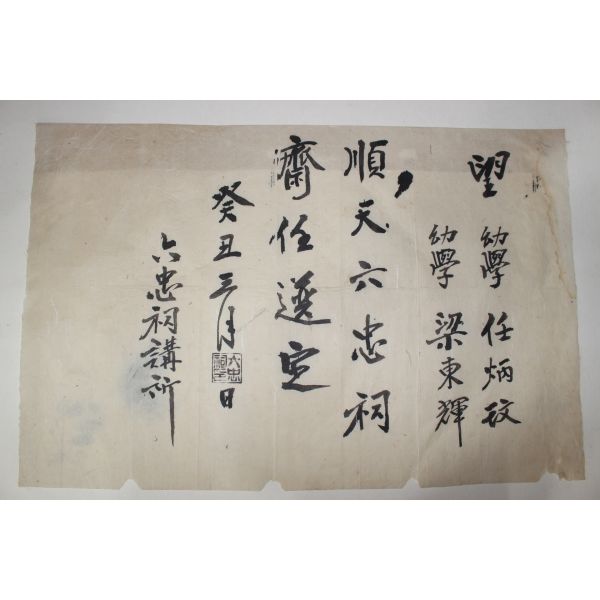 望 幼學 任炳玟
幼學 梁東輝
順天六忠祠
齋任選定
癸丑三月 日
六忠祠講所